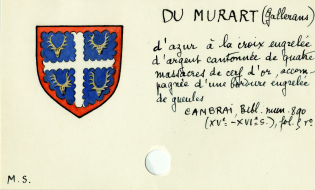 DU MURART (Gallerans)
d'azur à la croix engrelée
d'argent cantonnée de quatre
massacres de cerf d'or, accom-
pagnée d'une bordure engrelée
de gueules
CAMBRAI, Bibl. mun. 890
(XVe.-XVIe s.), fol. r°.
M.S.